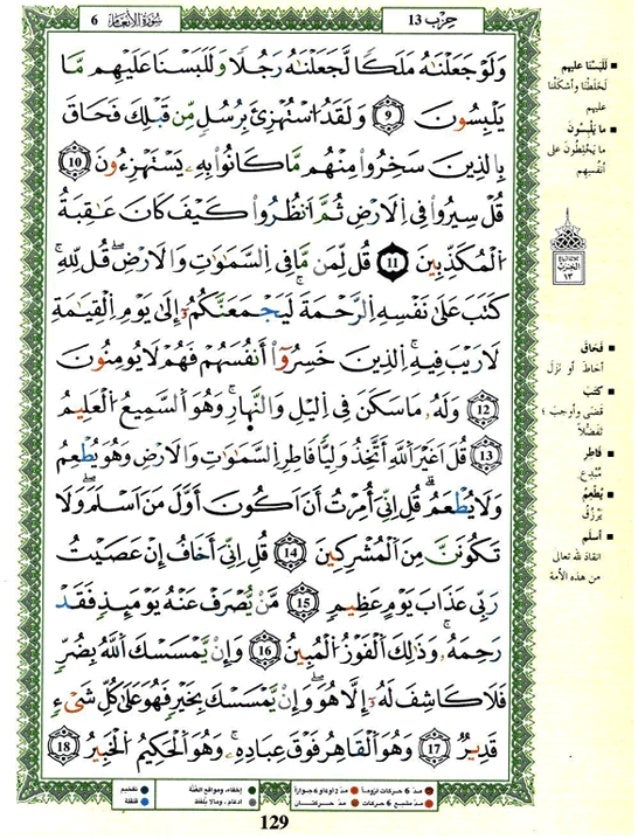 سُورَةُ الأَنْعَامِ 6
حِزْبُ 13
وَلَوْ جَعَلْنَٰهُ مَلَكًا لَّجَعَلْنَٰهُ رَجُلًا وَلَلَبَسْنَا عَلَيْهِم مَّا
يَلْبِسُونَ 9 وَلَقَدُ اسْتُهْزِئَ بِرُسُلٍ مِّن قَبْلِكَ فَحَاقَ
بِالذِينَ سَخِرُوا مِنْهُم مَّا كَانُوا بِهِۦ يَسْتَهْزِءُونَ 10
قُلْ سِيرُوا فِي اِلَارْضِ ثُمَّ اَنظُرُوا كَيْفَ كَانَ عَٰقِبَةُ
اُلْمُكَذِّبِينَ 11 قُل لِّمَن مَّا فِي اِلسَّمَٰوَٰتِ وَالَارْضِ قُل لِّلهِ
كَتَبَ عَلَىٰ نَفْسِهِ اِلرَّحْمَةَ لَيَجْمَعَنَّكُمُۥ إِلَىٰ يَوْمِ اِلْقِيَٰمَةِ
لَا رَيْبَ فِيهِ اِلذِينَ خَسِرُوا أَنفُسَهُمْ فَهُمْ لَا يُومِنُونَ
12 وَلَهُۥ مَا سَكَنَ فِي اِليْلِ وَالنَّهارِ وَهُوَ اَلسَّمِيعُ اُلْعَلِيمُ
13 قُلَ اَغَيْرَ اَللَّهِ أَتَّخِذُ وَلِيًّا فَاطِرِ اِلسَّمَٰوَٰتِ وَالَارْضِ وَهُوَ يُطْعِمُ
وَلَا يُطْعَمُ قُلِ اِنِّيَ أُمِرْتُ أَنَ اَكُونَ أَوَّلَ مَنَ اَسْلَمَ وَلَا
تَكُونَنَّ مِنَ اَلْمُشْرِكِينَ 14 قُلِ اِنِّيَ أَخَافُ إِنْ عَصَيْتُ
رَبِّي عَذَابَ يَوْمٍ عَظِيمٍ 15 مَّنْ يُّصْرَفْ عَنْهُ يَوْمَئِذٍ فَقَدْ
رَحِمَهُۥ وَذَٰلِكَ اَلْفَوْزُ اُلْمُبِينُ 16 وَإِنْ يَّمْسَسْكَ اَللَّهُ بِضُرٍّ
فَلَا كَاشِفَ لَهُۥ إِلَّا هُوَ وَإِنْ يَّمْسَسْكَ بِخَيْرٍ فَهُوَ عَلَىٰ كُلِّ شَيْءٍ
قَدِيرٌ 17 وَهُوَ اَلْقَاهِرُ فَوْقَ عِبَادِهِۦ وَهُوَ اَلْحَكِيمُ اُلْخَبِيرُ 18
لَلَبَسْنَا عليهم
لَخَلَطْنَا وأشكلْنا
عليهم
ما يَلْبِسُونَ
ما يَخْلِطُونَ على
أنفُسِهِم
ثلاثة أرباع
الحزب
١٣
فَحَاقَ
أحاطَ أو نَزَلَ
كَتَبَ
قضى وأوجبَ ؛
تفضُّلاً
فَاطِرِ
مُبْدِعِ
يُطْعِمُ
يَرْزُقُ
أسلَمَ
انقادَ لله تعالى
من هذه الأمة
مدّ 6 حركات لزوماً مدّ 2 أو 4 أو 6 جوازاً إخفاء، ومواقع الغنّة تفخيم
مدّ مشبع 6 حركات مدّ حركتان ادغام، وما لا يُلفظ قلقلة
129